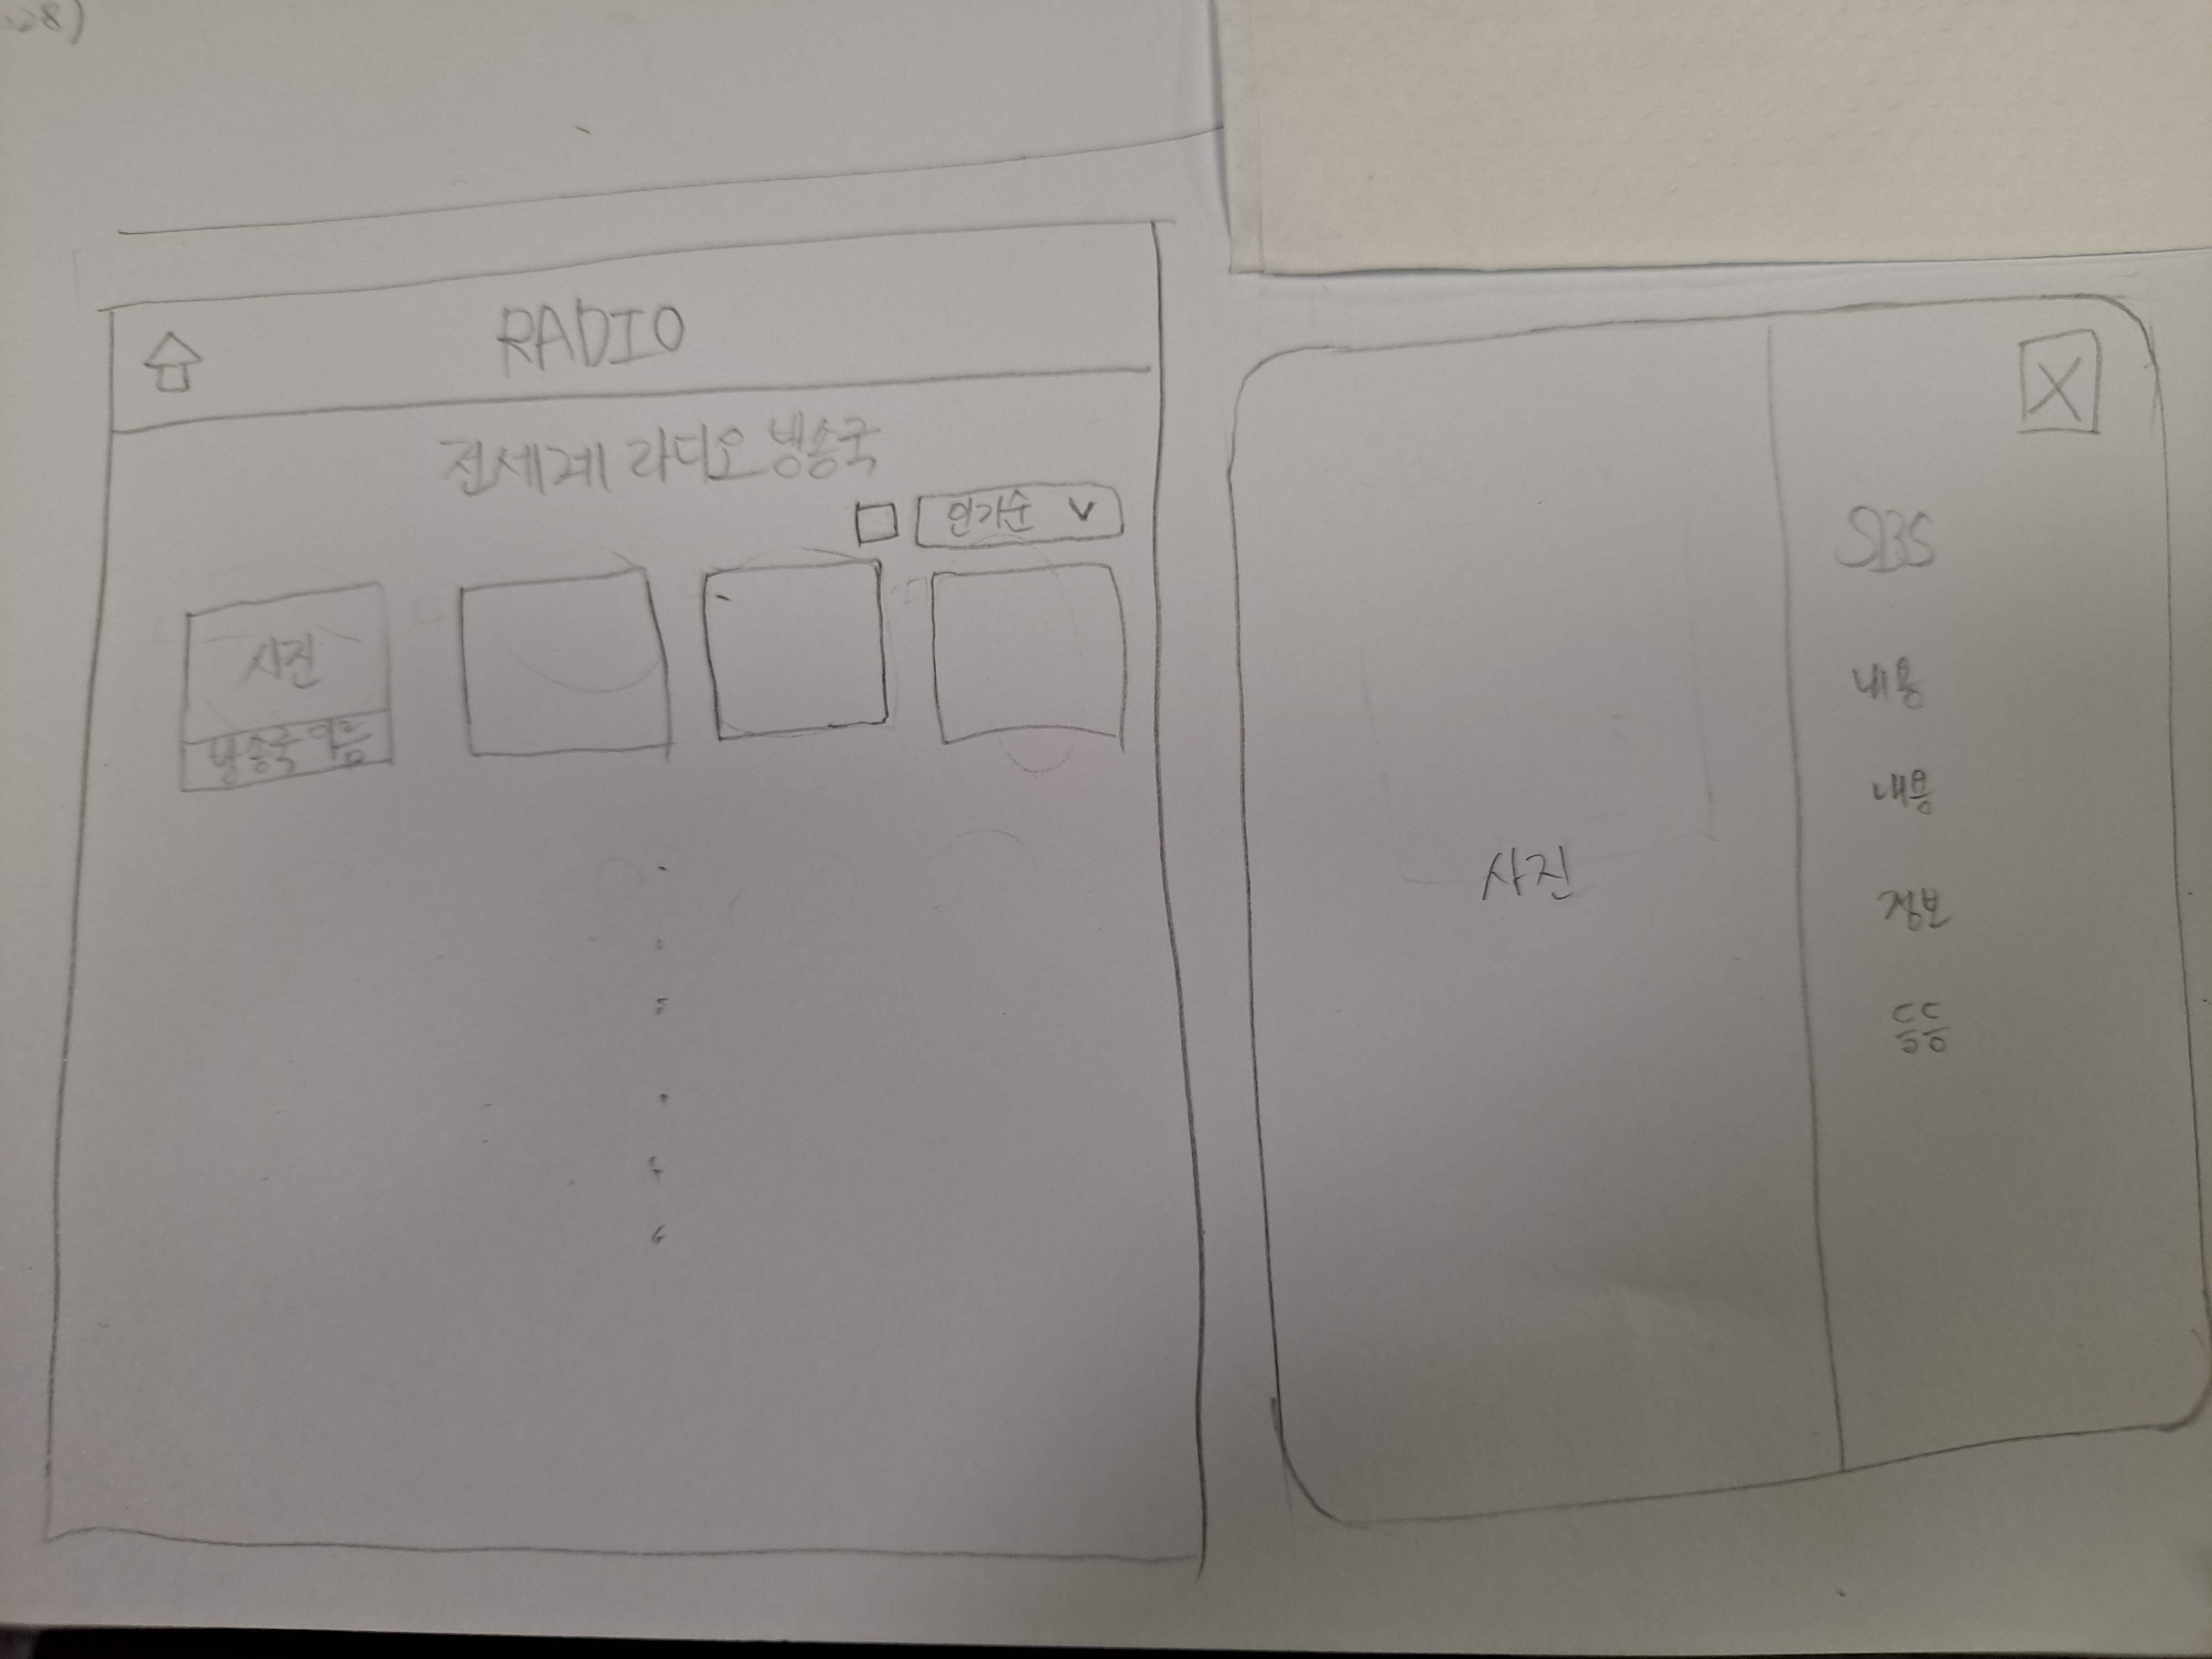 28)
RADIO
전세계 라디오 방송국
인기순 V
사진
방송국 이름
X
SBS
내용
내용
사진
정보
등등